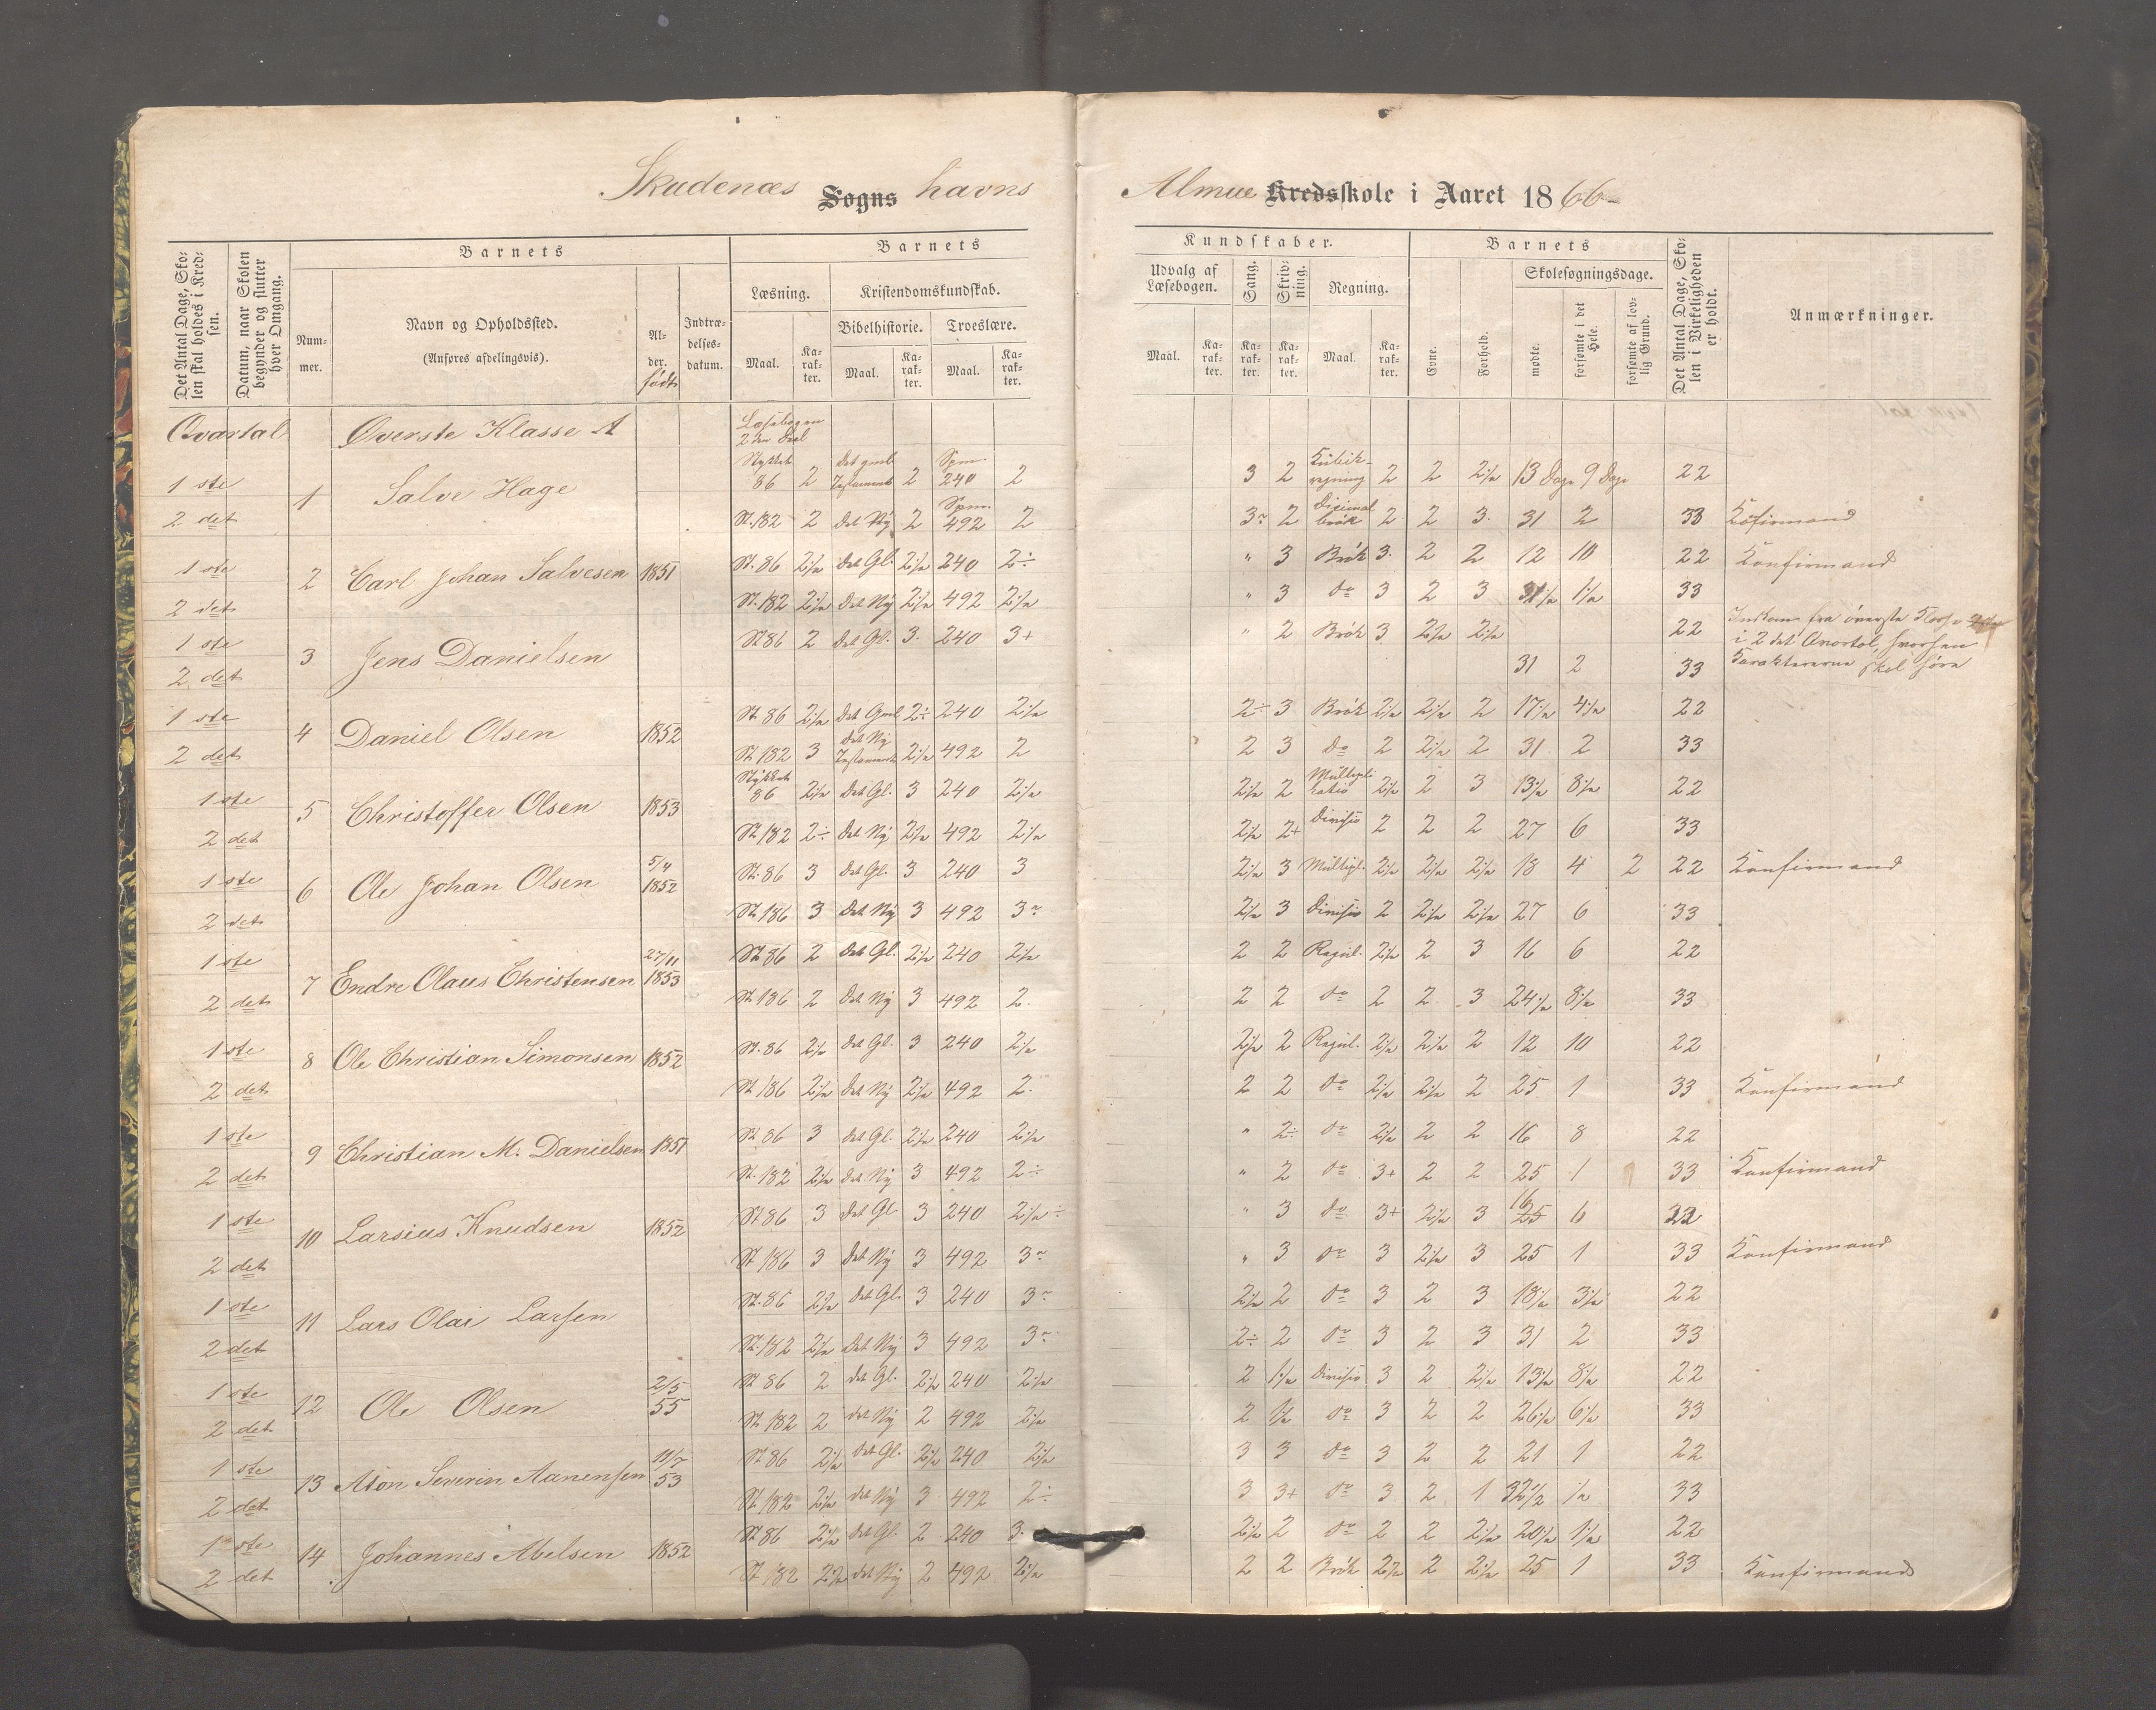 Skudenæs Sogns havns Almue Kredsskole i Aaret 1866
Det Antal Dage, Skolen skal holdes i Kredsen.
Datum, naar Skolen begynder og slutter hver Omgang.
Barnets
Nummer.
Navn og Opholdssted.
(Anføres afdelingsvis).
Alder.
født
Indtrædelsesdatum.
Barnets Kundskaber.
Læsning.
Maal. Karakter.
Kristendomskundskab.
Bibelhistorie. Troeslære.
Maal. Karakter. Maal. Karakter.
Udvalg af Læsebogen.
Maal. Karakter.
Sang.
Karakter.
Skrivning.
Karakter.
Regning.
Maal. Karakter.
Barnets
Evne.
Forhold.
Skolesøgningsdage.
mødte.
forsømte i det Hele.
forsømte af lovlig Grund.
Det Antal Dage, Skolen i Virkeligheden er holdt.
Anmærkninger.
Qvartal Øverste Klasse A Læsebogen 2den Deel
1 ste 1 Salve Hage Stykket 86 2 Det gml Testament 2 Spm. 240 2 3 2 Kubikregning 2 2 2½ 13 Dage 9 Dage 22
2 det St. 182 2 Det Ny 2 Spm. 492 2 3 2 Decimalbrök 2 2 3 31 2 33 Kofirmand
1 ste 2 Carl Johan Salvesen 1851 St. 86 2½ Det Gl. 2½ 240 2÷ " 3 Brök 3 2 2 12 10 22 Konfirmand
2 det St. 182 2½ Det Ny 2½ 492 2½ " 3 do 3 2 3 31½ 1½ 33
1 ste 3 Jens Danielsen St 86 2 Det Gl. 3 240 3+ " 2 Brök 3 2½ 2½ 22 fra överste Klasse
i 2 det Qvartal, hvorhen
2 det 31 2 33 Karaktererne skal høre
1 ste 4 Daniel Olsen 1852 St. 86 2½ Det Gml 2÷ 240 2½ 2÷ 3 Brök 2½ 2½ 2 17½ 4½ 22
2 det St 182 3 Det Ny Testament 2½ 492 2 2 3 do 2 2½ 2 31 2 33
1 ste 5 Christoffer Olsen 1853 Stykket 86 2½ Det Gl. 3 240 2½ 2½ 2 Multiplicatio 2½ 2 3 13½ 8½ 22
2 det St. 182 2÷ Det Ny 2½ 492 2½ 2½ 2+ Divisio 2 2 2 27 6 33
1 ste 6 Ole Johan Olsen 5/4 1852 St. 86 3 Det Gl. 3 240 3 2½ 3 Multipl. 2½ 2½ 2½ 18 4 2 22 Konfirmand
2 det St. 186 3 Det Ny 3 492 3 2½ 3 Divisio 2 2½ 2½ 27 6 33
1 ste 7 Endre Olaus Christensen 27/11 1853 St 86 2 Det Gl. 2½ 240 2½ 2 2 Regul. 2½ 2 3 16 6 22
2 det St. 186 2 Det Ny 3 492 2. 2 2 do 2 2 3 24½ 8½ 33
1 ste 8 Ole Christian Simonsen 1852 St. 86 2½ Det Gl. 3 240 2½ 2½ 2 Regul. 2½ 2½ 2 12 10 22
2 det St 186 2½ Det Ny 2½ 492 2. 2 2 do 2½ 2½ 2 25 1 33 Konfirmand
1 ste 9 Christian M. Danielsen 1851 St 86 3 Det Gl. 2½ 240 2½ " 2÷ do 2½ 2 2 16 8 22
2 det St. 182 2½ Det Ny 3 492 2÷ " 2 do 3+ 2 2 25 1 33 Konfirmand
1 ste 10 Larsius Knudsen 1852 St 86 3 Det Gl. 3 240 2½÷ " 3 do 3+ 2½ 3 16 25 6 22
2 det St 186 3 Det Ny 3 492 3 " 3 do 3 2½ 3 25 1 33 Konfirmand
1 ste 11 Lars Olai Larsen St. 86 2½ Det Gl. 3 240 3 2½ 2 do 3 2 3 18½ 3½ 22
2 det St. 182 2½ Det Ny 3 492 3 2÷ 2 do 3 2 3 31 2 33
1 ste 12 Ole Olsen 2/5 55 St 86 2 Det Gl. 2½ 240 2½ 2 1½ Divisio 3 2 2½ 13½ 8½ 22
2 det St. 182 2 Det Ny 2 492 2½ 2 1½ do 3 2 2 26½ 6½ 33
1 ste 13 Aton Severin Aanensen 11/7 53 St 86 2½ Det Gl. 2½ 240 2½ 3 3 do 3 2 2 21 1 22
2 det St. 182 2½ Det Ny 3 492 2÷ 3 3+ do 3 2 1 32½ ½ 33
1 ste 14 Johannes Abelsen 1852 St 86 2½ Det Gl. 2 240 3. 2½ 2 do 2 2 2½ 20½ 1½ 22
2 det St 182 2½ Det Ny 2 492 2½ 2 2 Brök 2½ 2 2½ 25 1 33 Konfirmand